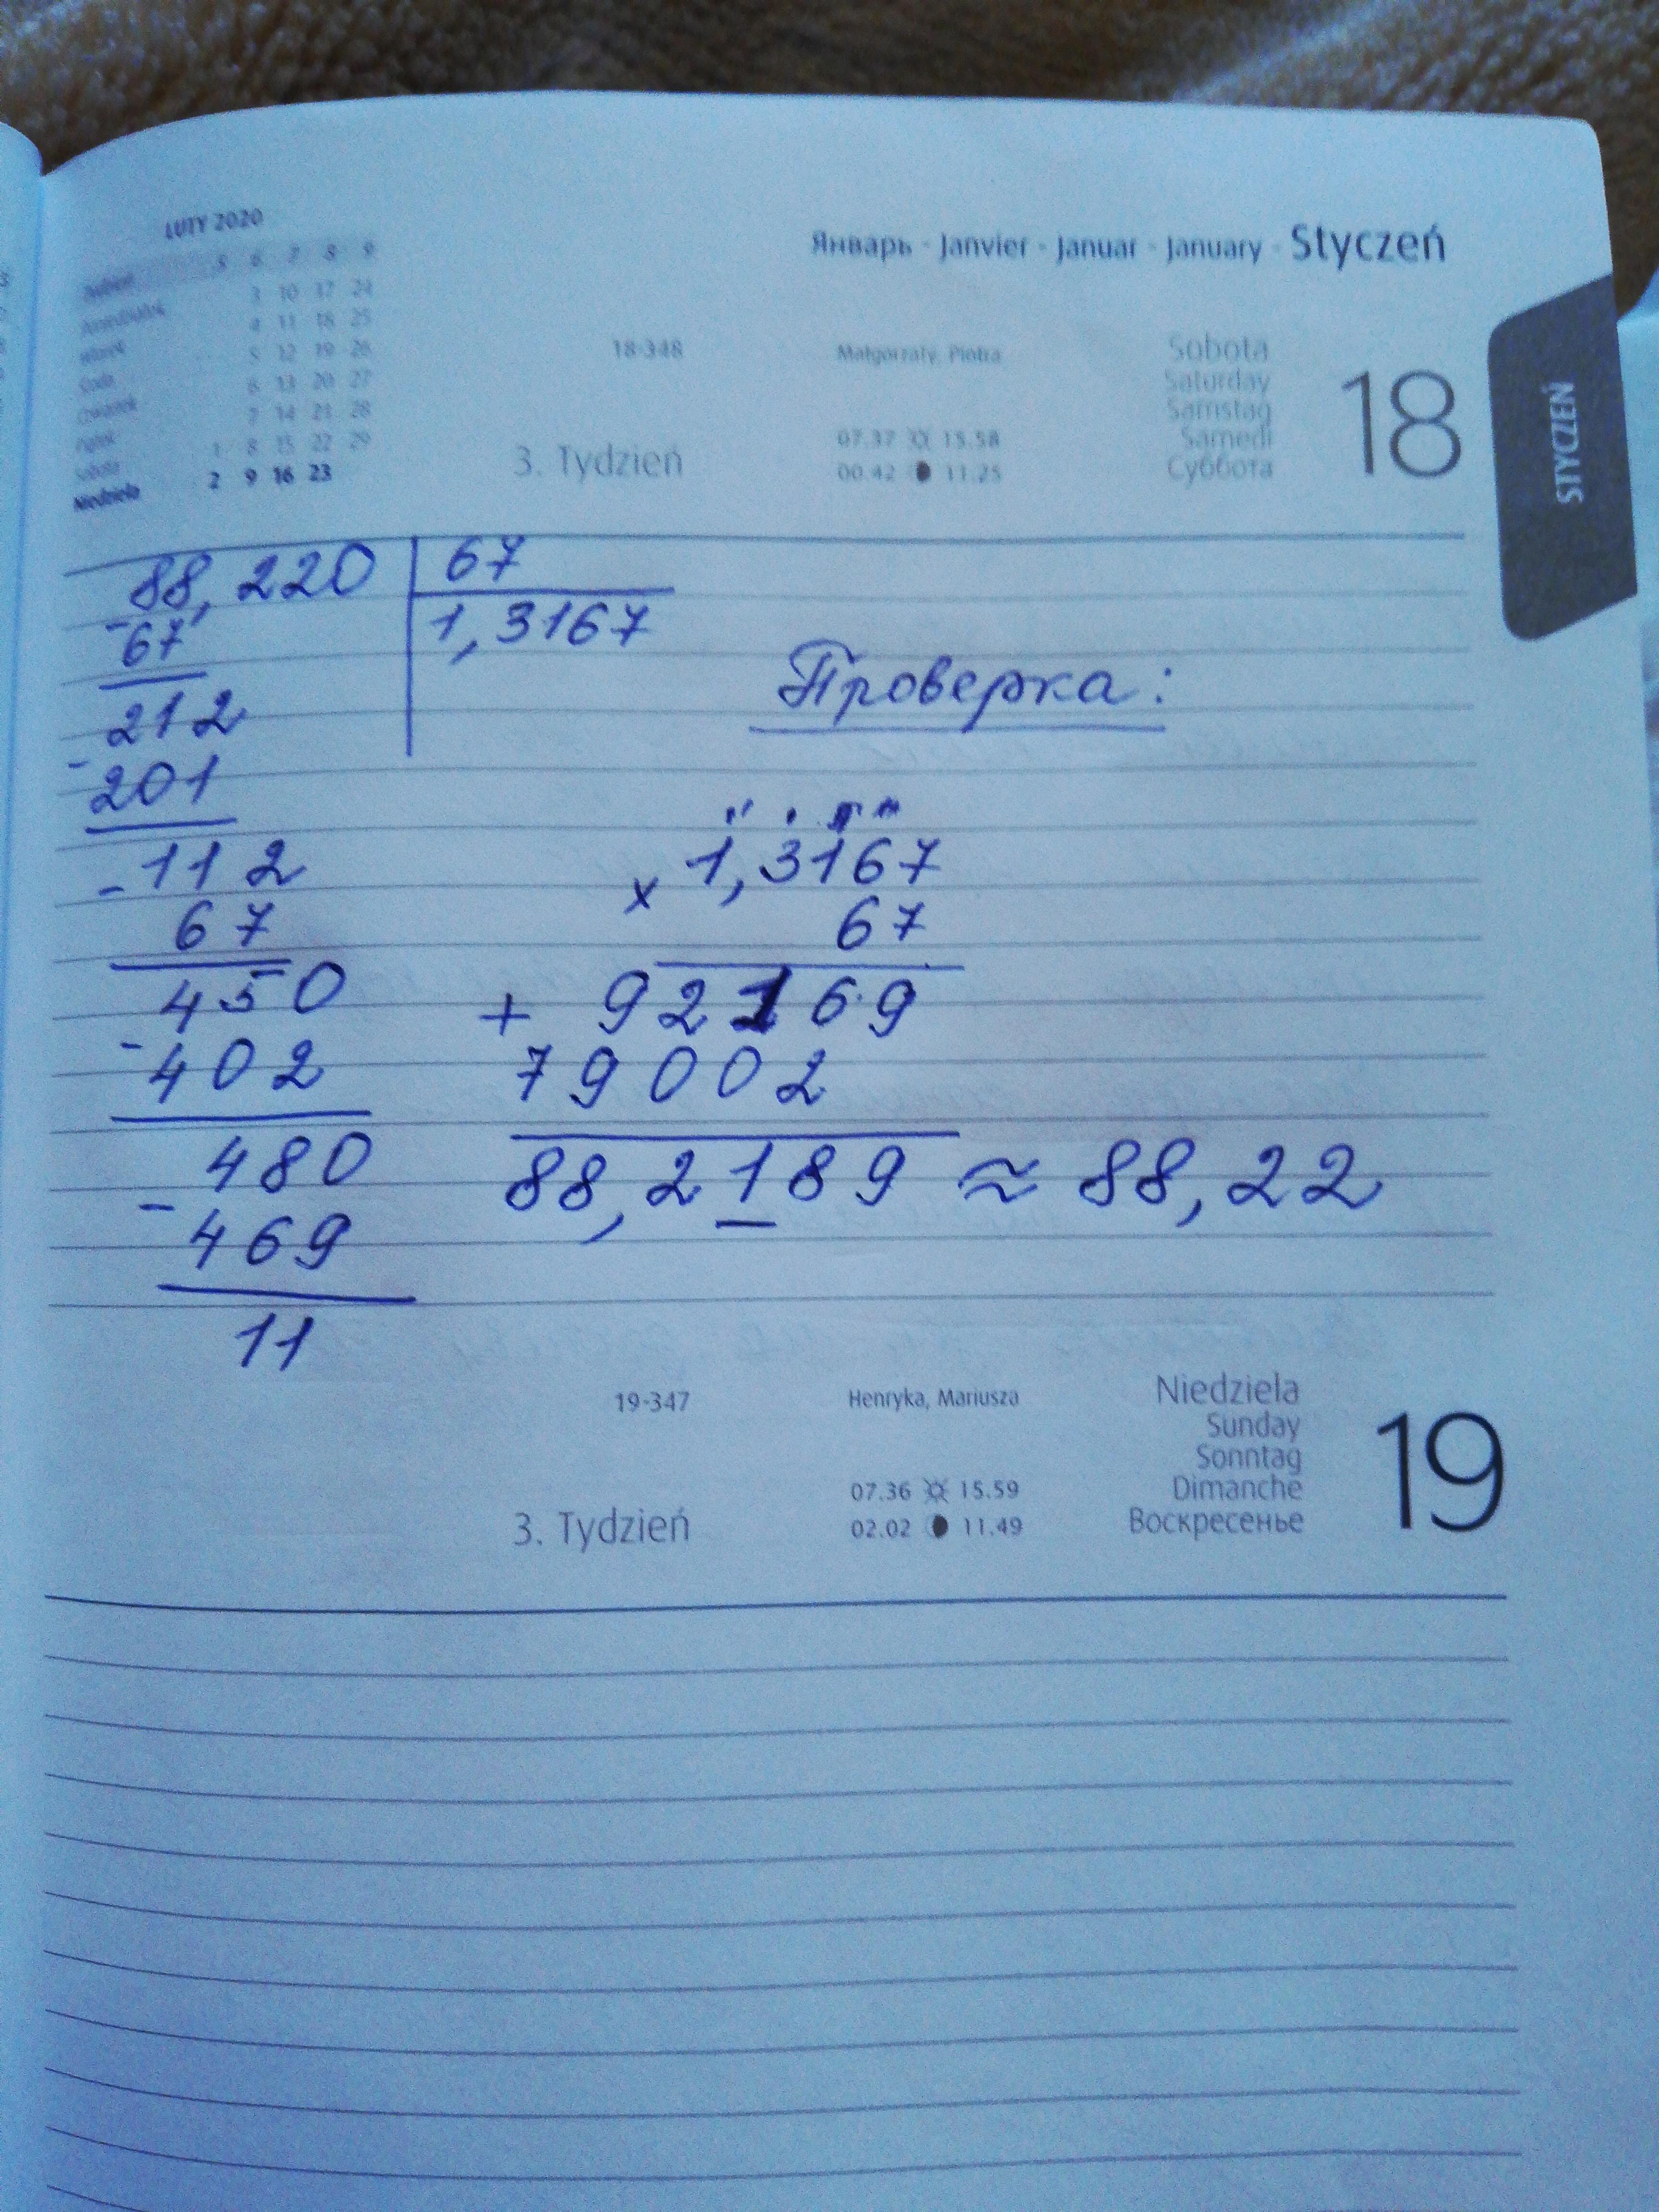 LUTY 2020
Январь - Janvier - Januar - January - Styczeń
Tydzień 5 6 7 8 9
Poniedziałek 3 10 17 24
Wtorek 4 11 18 25
Środa 5 12 19 26
Czwartek 6 13 20 27
Piątek 7 14 21 28
Sobota 1 8 15 22 29
Niedziela 2 9 16 23
18-348
Małgorzaty, Piotra
3. Tydzień
07.37 15.58
00.42 11.25
Sobota
Saturday
Samstag
Samedi
Суббота
18
STYCZEŃ
88,220 67
- 67 1,3167
212
- 201
- 112
67
450
- 402
480
- 469
11
Проверка:
1,3167
x 67
+ 92169
79002
88,2189 ≈ 88,22
19-347
Henryka, Mariusza
3. Tydzień
07.36 15.59
02.02 11.49
Niedziela
Sunday
Sonntag
Dimanche
Воскресенье
19